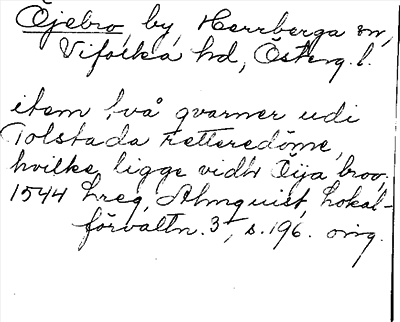 Öjebro, by, Herrberga sn,
Vifolka hd, Österg. l.
item två qvarner udi
Tolstada Fetteredöme,
hvilke ligge vidh Öija broo,
1544 Lreg, Almquist, Lokal-
förvaltn. 3, s. 196. orig.